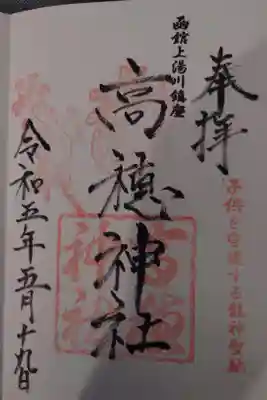 奉拝
子供を守護する龍神
函館上湯川鎮座
高穂神社
高穂
神社
令和五年五月十九日